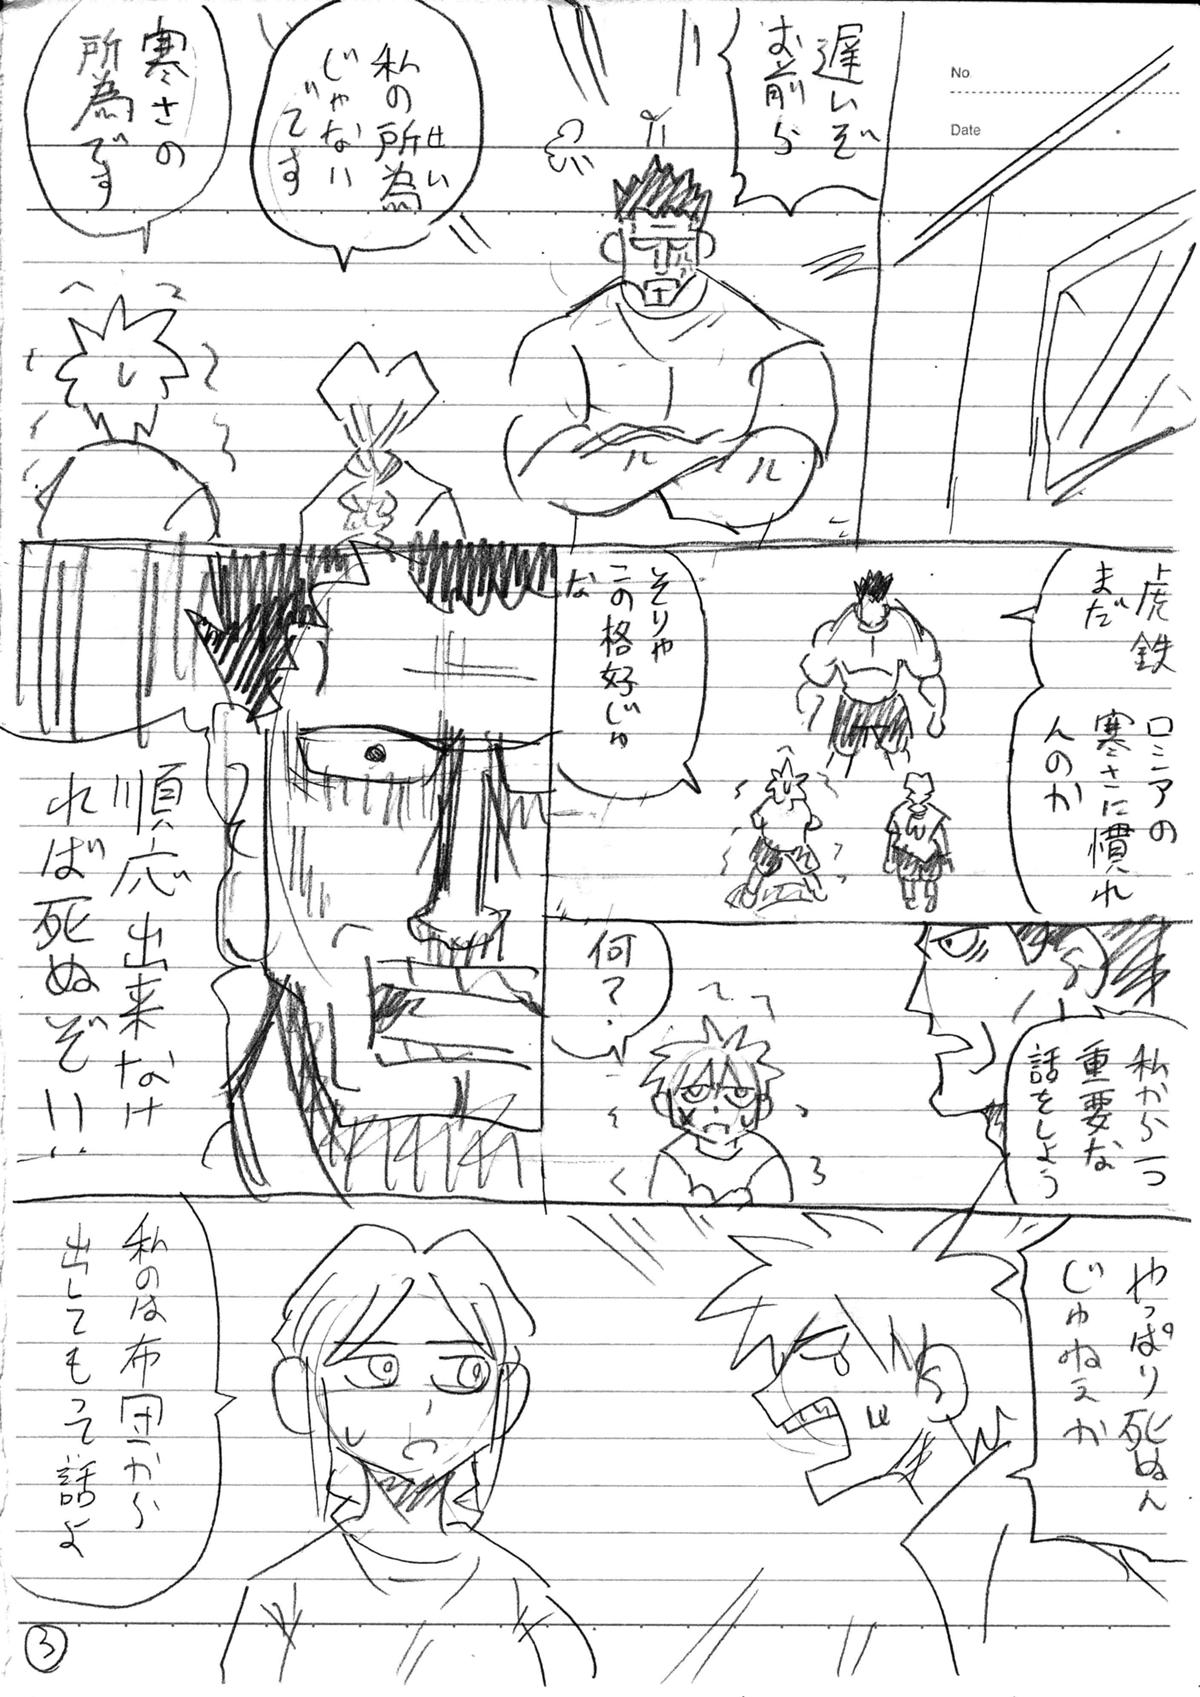 No
Date
遅いぞ
お前ら
私の所為
せい
じゃない
です
寒さの
所為です
虎鉄
まだ
ロシアの
寒さに慣れ
んのか
そりゃ
この格好じゃ
な
私から一つ
重要な
話をしよう
何?
順応出来なけ
れば死ぬぞ!!
やっぱり死ぬん
じゃねェか
私のは布団から
出してもって話よ
3